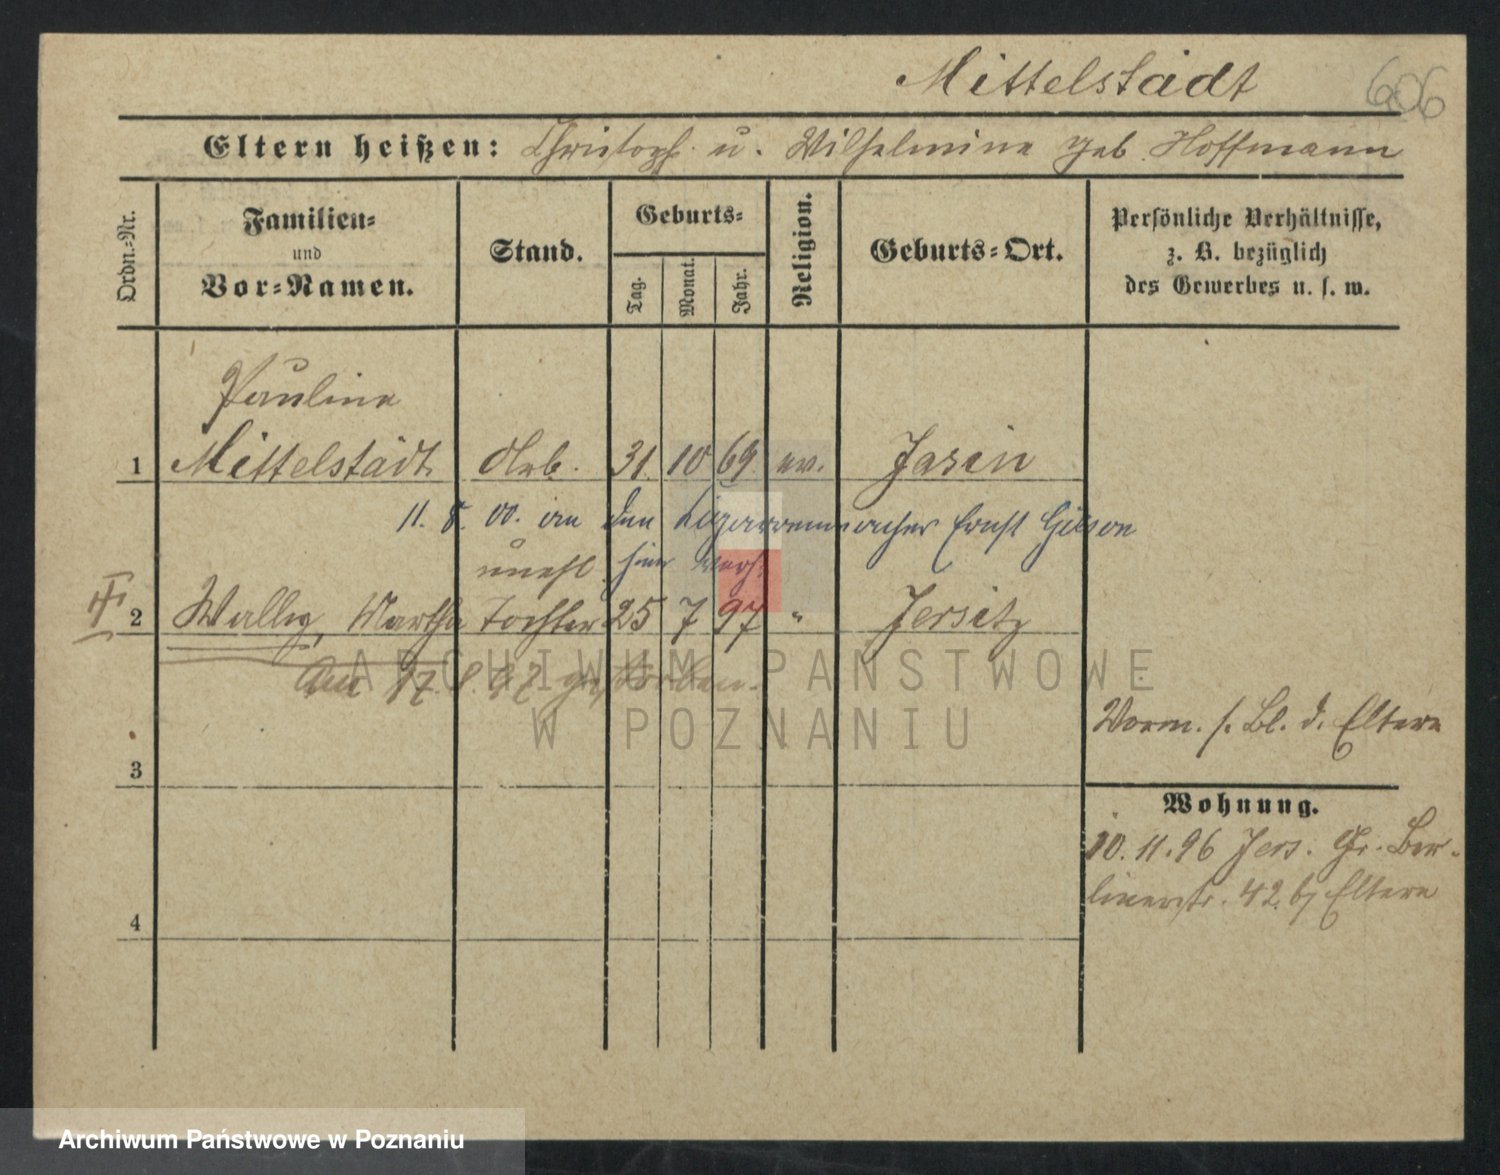 Mittelstädt
606
Eltern heißen: Christoph u. Wilhelmine geb. Hoffmann
Ordn.-Nr.
Familien-
und
Vor-Namen.
Stand.
Geburts-
Tag.
Monat.
Jahr.
Religion.
Geburts-Ort.
Persönliche Verhältnisse,
z. B. bezüglich
des Gewerbes u. s. w.
Pauline
1 Mittelstädt Arb. 31. 10 69 ev. Jasin
11. 8. 00. an den Zigarrenmacher Ernst
unehl. hier verh.
2 Wally, Martha Tochter 25 7 97 "  Jersitz
Am 17. 8. 97 gestorben.
ARCHIWUM PAŃSTWOWE
W POZNANIU
Vorm. s. Bl. d. Eltern
3
Wohnung.
10. 11. 96 Jers. Gr. Ber-
linerstr. 42. b/ Eltern
4
Archiwum Państwowe w Poznaniu